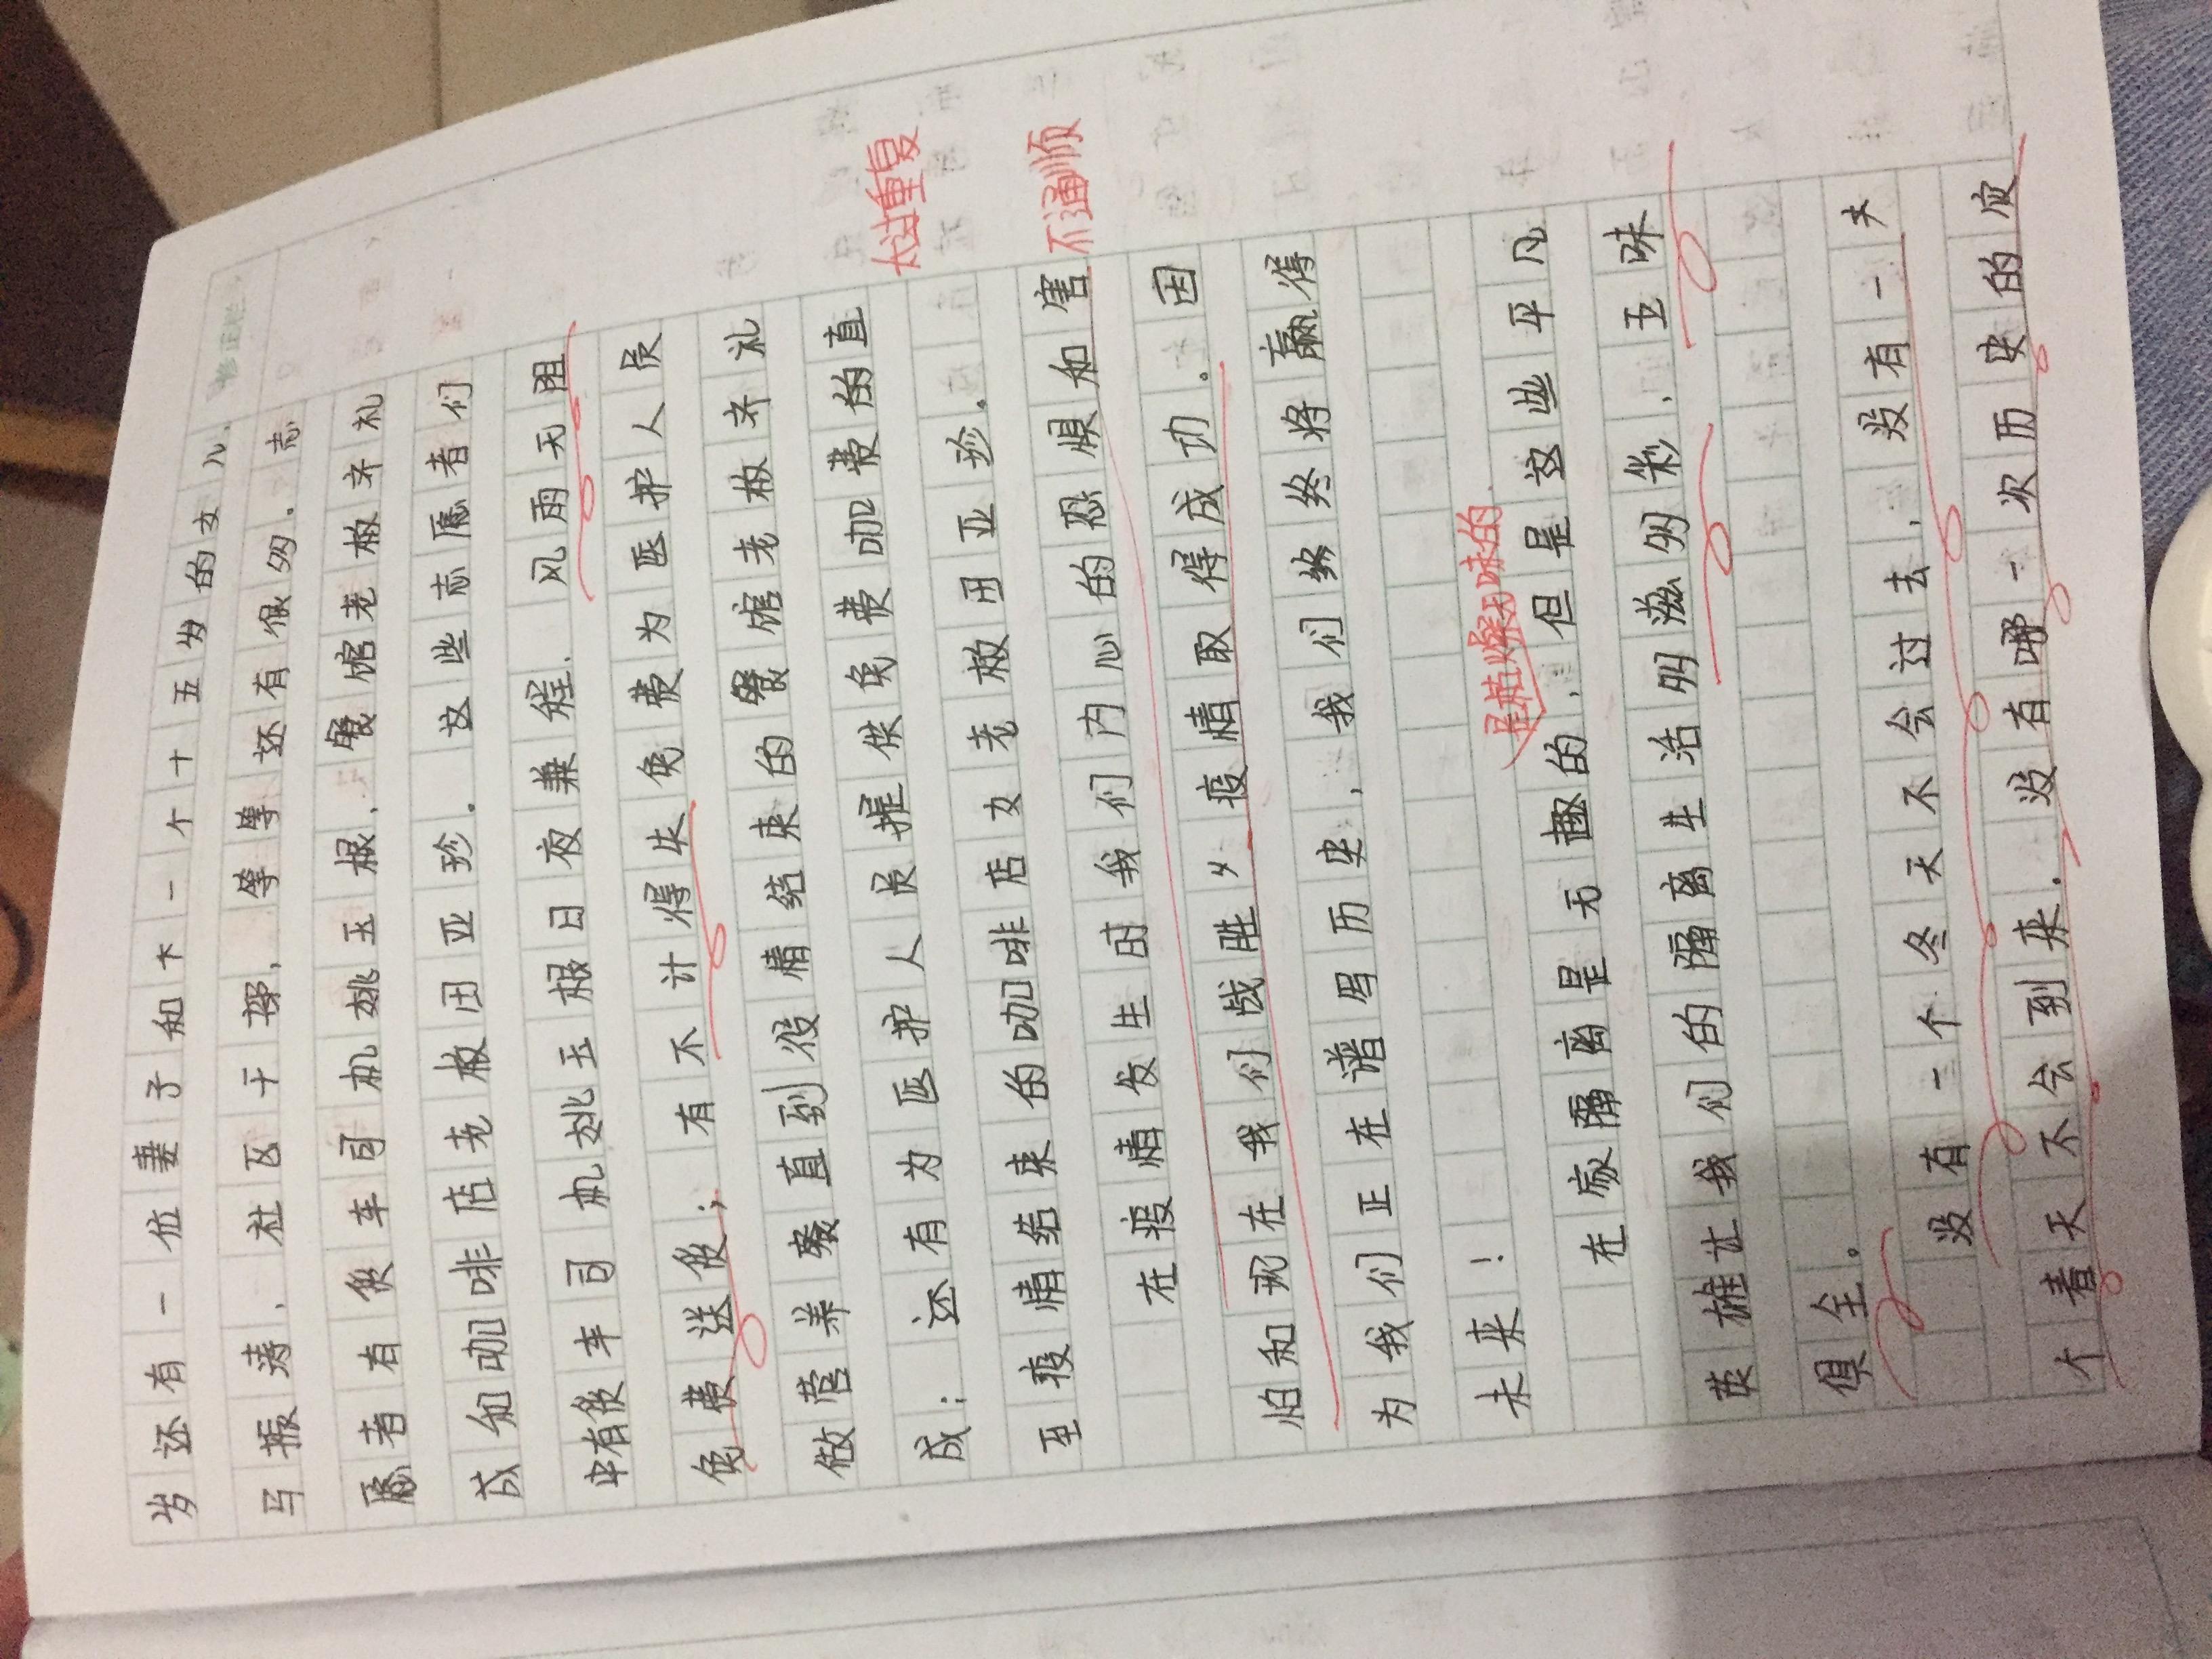 岁还有一位妻子和下一个十五岁的女儿、
马振涛、社区干部,等等还有很多。志
愿者有货车司机姚玉根、餐馆老板齐礼
成和咖啡店老板田亚珍。这些志愿者们
中有货车司机姚玉根日夜兼程、风雨无阻
有不计得失免费为医护人员
免费送饭;
做营养餐直到役情结束的餐馆老板齐礼
成;还有为医护人员提供免费咖啡的直
至疫情结束的咖啡店女老板田亚珍。
太过重复
在疫情发生时我们内心的恐惧和害
不通顺
怕和现在我们战胜了疫情取得成功。因
为我们正在谱写历史,我们终将赢得
未来!
在家隔离是无趣的,但是这些平凡
是枯燥无味的
英雄让我们的隔离生活多滋多彩,五味
俱全。
没有一个冬天不会过去,没有一
个春天不会到来。没有哪一次历史的灾